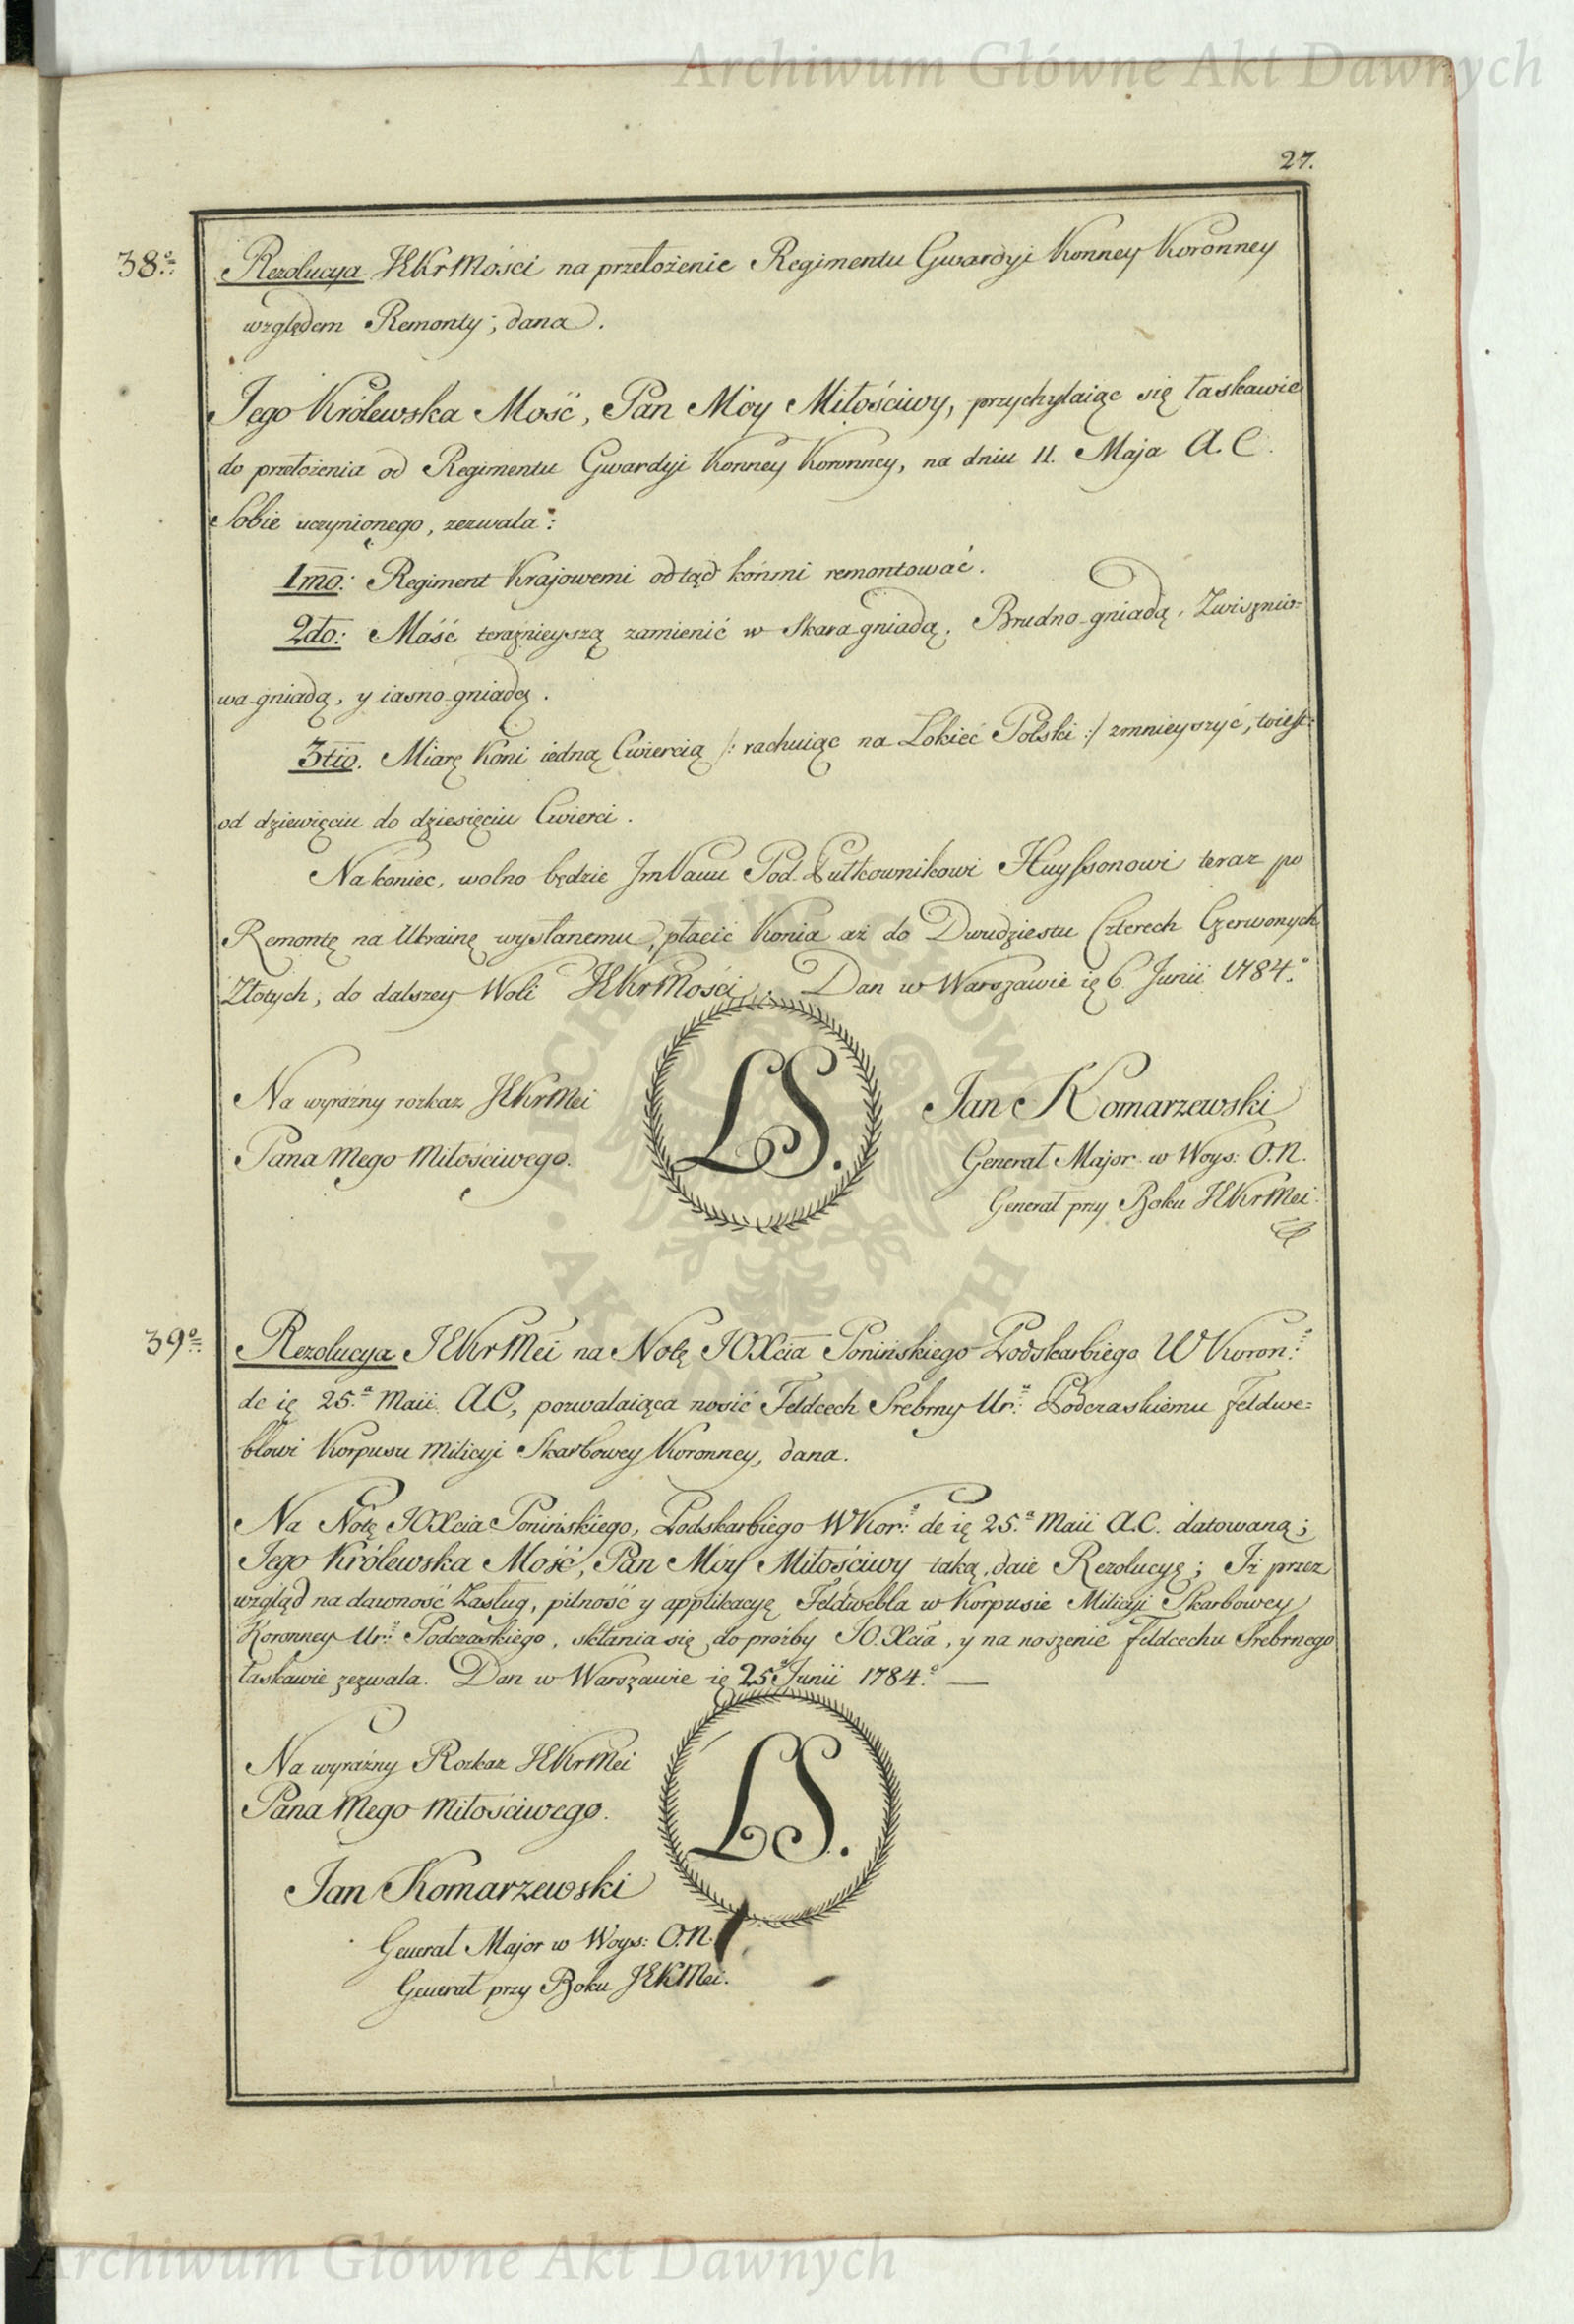 Archiwum Główne Akt Dawnych
27.
38º: Rezolucya JKKrMości na przełożenie Regimentu Gwardyi Konney Koronney
względem Remonty; dana.
Jego Królewska Mość, Pan Móy Miłościwy, przychylaiąc się łaskawie
do przełożenia od Regimentu Gwardyi Konney Koronney, na dniu 11. Maja A. C.
Sobie uczynionego, zezwala:
1mo: Regiment Krajowemi odtąd końmi remontować.
2do: Maść teraźnieyszą zamienić w Skaragniadą, Brudno-gniadą, Zwisznio=
wa-gniadą, y iasno-gniadą.
3tio. Miarę Koni iedną Cwiercią /: rachuiąc na Łokieć Polski :/ zmnieyszyć, to iest:
od dziewięciu do dziesięciu Cwierci.
Na koniec, wolno będzie Jm Panu Pod-Pułkownikowi Huyssonowi teraz po
Remontę na Ukrainę wysłanemu, płacić Konia aż do Dwudziestu Czterech Czerwonych
Złotych, do dalszey Woli JKKrMości. Dan w Warszawie ię 6 Junii 1784.º
Na wyraźny rozkaz JKKrMci
Pana Mego Miłościwego.
LS.
Jan Komarzewski
Generał Major w Woys: O.N.
Generał przy Boku JKKrMci.
39º: Rezolucya JKKrMci na Notę JOXcia Ponińskiego Podskarbiego W Koron:
de ię 25.ª Maii AC, pozwalaiąca nosić Feldcech Srebrny Ur: Podczaskiemu Feldwe=
blowi Korpusu Milicyi Skarbowey Koronney, dana.
Na Notę JOXcia Ponińskiego, Podskarbiego WKor: de ię 25.ª Maii A.C. datowaną;
Jego Królewska Mość, Pan Móy Miłościwy taką daie Rezolucyę; Iż przez
wzgląd na dawność Zasług, pilność y applikacyę Feldwebla w Korpusie Milicyi Skarbowey
Koronney Ur: Podczaskiego, skłania się do prożby JO.Xcia, y na noszenie Feldcechu Srebrnego
łaskawie zezwala. Dan w Warszawie ię 25ª Junii 1784.º —
Na wyraźny Rozkaz JKKrMci
Pana Mego Miłościwego.
LS.
Jan Komarzewski
Generał Major w Woys: O.N.
Generał przy Boku JKKMci.
Archiwum Główne Akt Dawnych